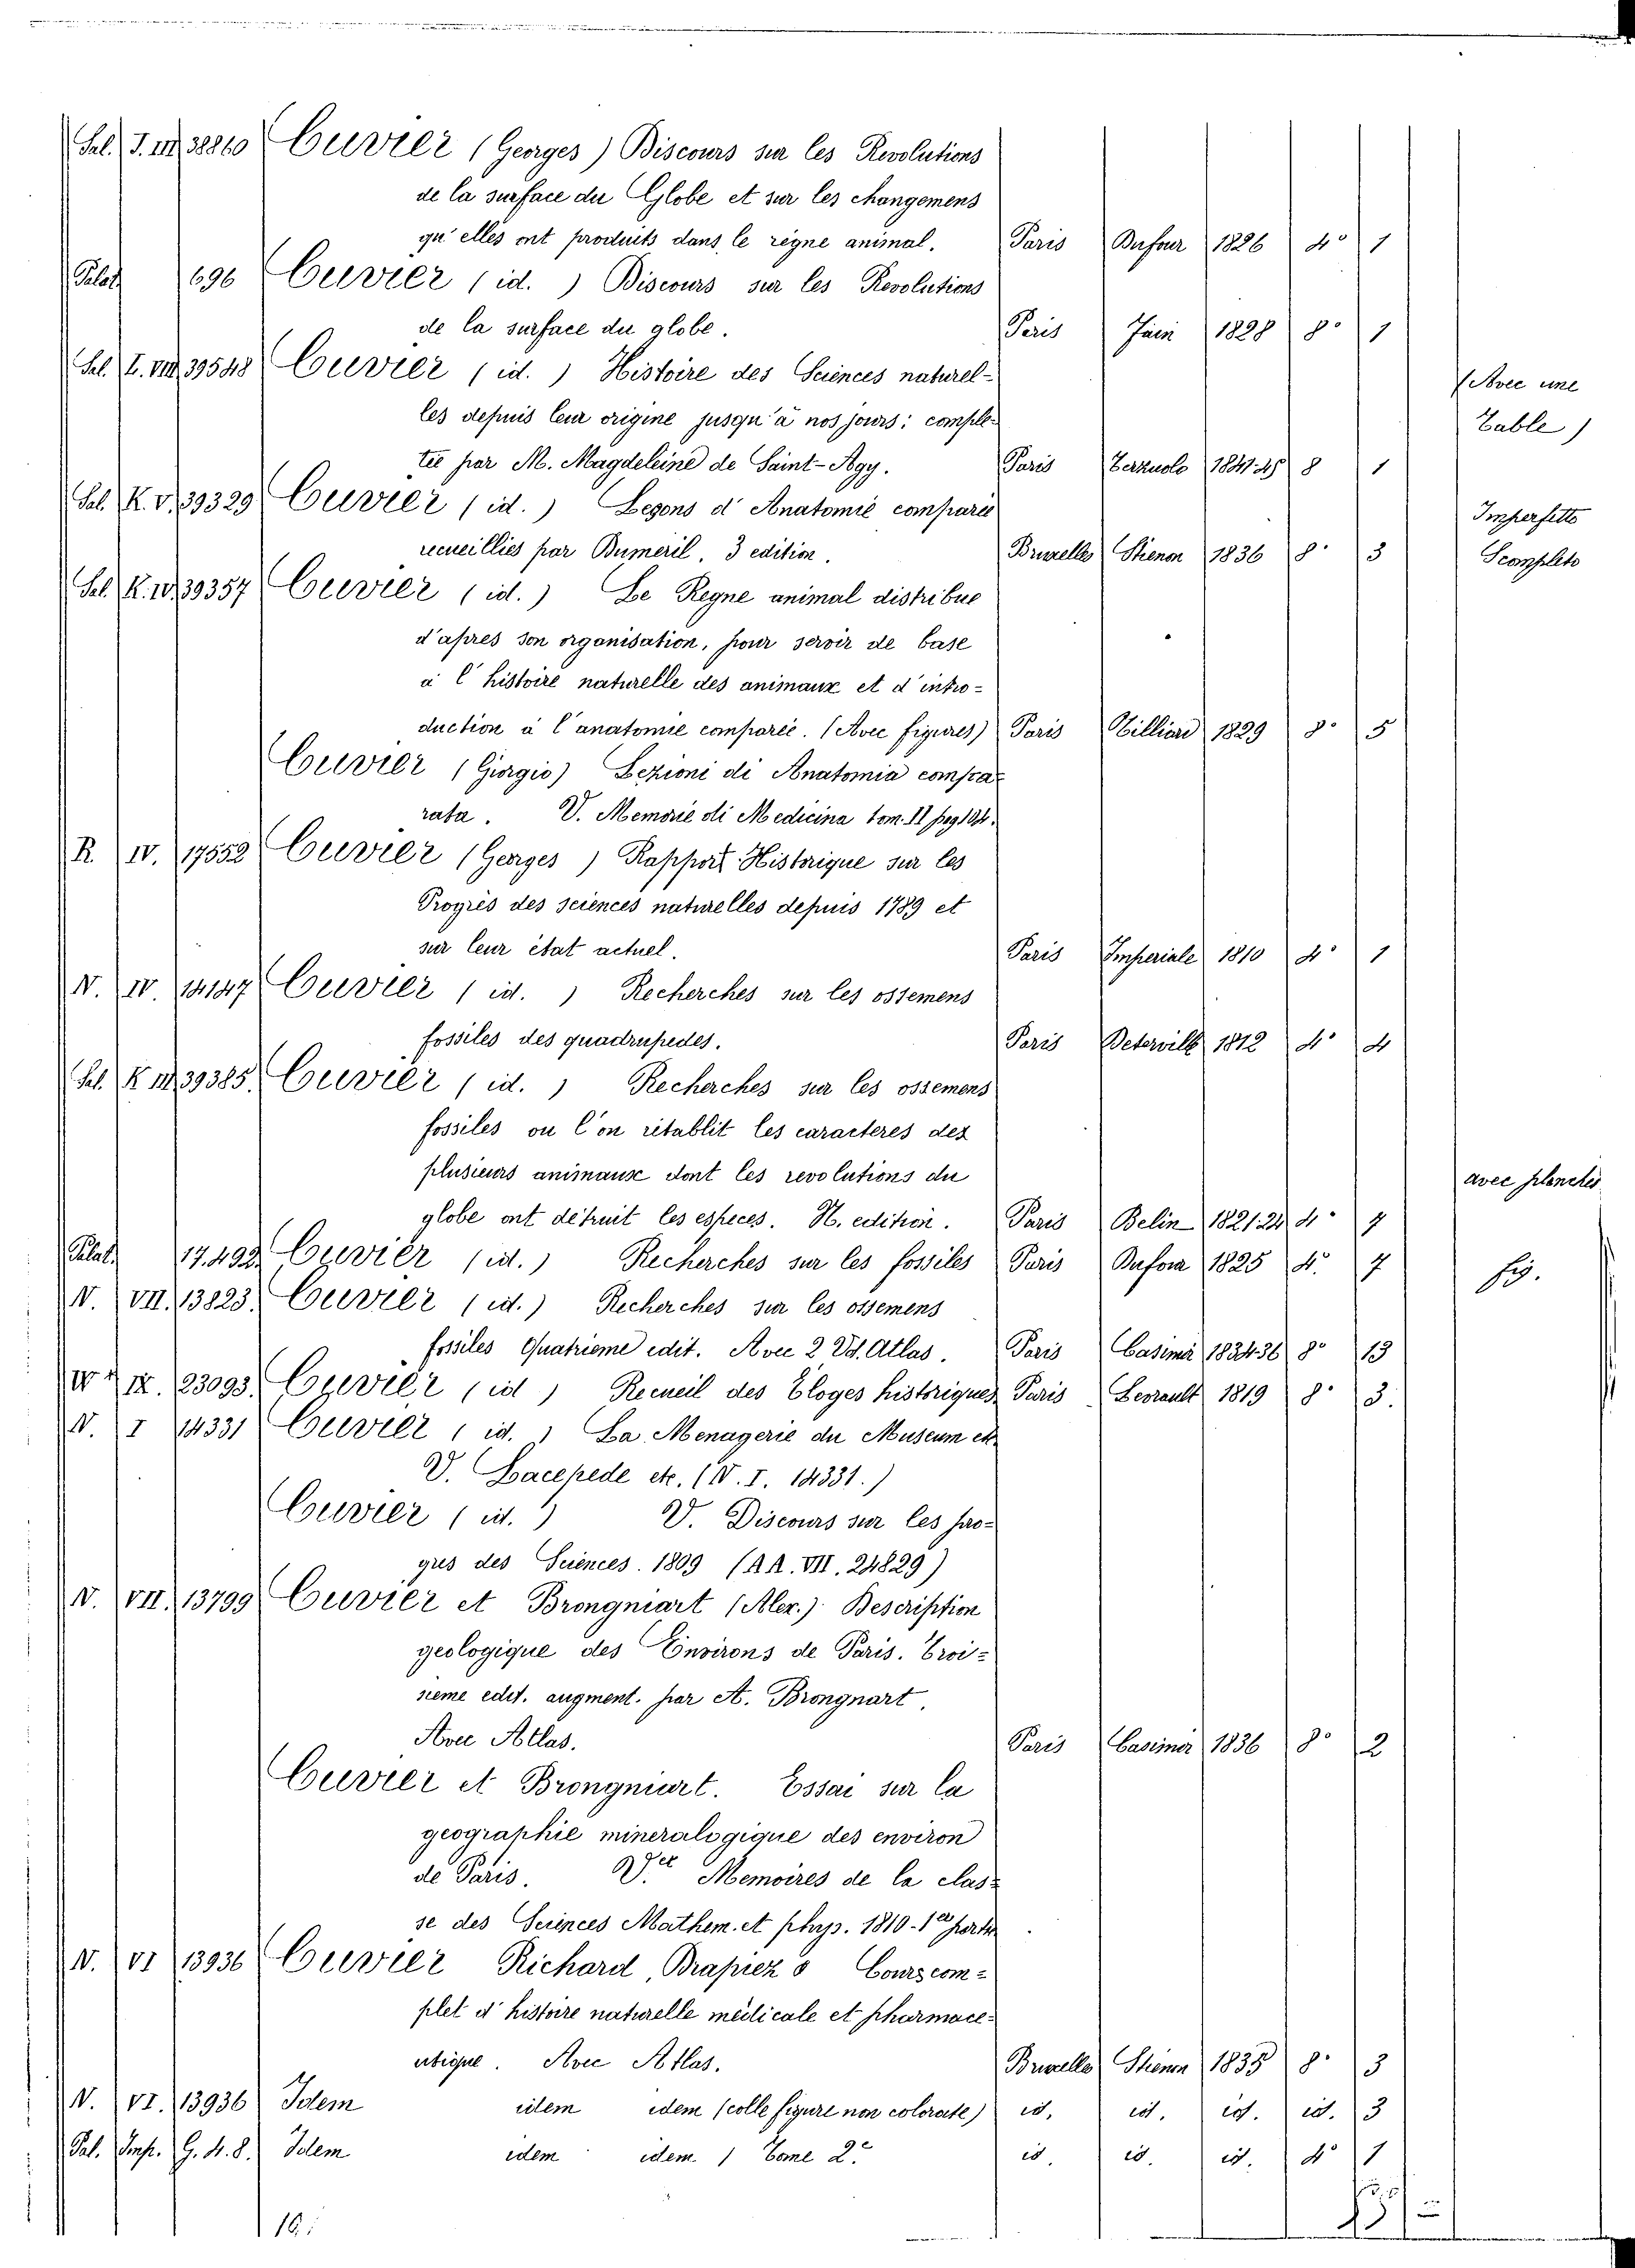 Sal. I. III 38860 Cuvier (Georges) Discours sur les Revolutions
de la surface du Globe et sur les changemens
qu'elles ont produits dans le règne animal. Paris Dufour 1826 4° 1
Palat. 696 Cuvier (id.) Discours sur les Revolutions
de la surface du globe. Paris 1828 8° 1
Sal. I. VIII 39548 Cuvier (id.) Histoire des Sciences naturel-
les depuis leur origine jusqu'à nos jours; comple-
tée par M. Magdeleine de Saint-Agy. Paris Terzuolo 1841-45 8 1 (Avec une
Table)
Sal. K. V. 39329 Cuvier (id.) Leçons d'Anatomie comparée
recueillies par Dumeril. 3 edition. Bruxelles 1836 8° 3 Imperfetto
Scompleto
Sal. K. IV. 39357 Cuvier (id.) Le Regne animal distribue
d'apres son organisation, pour servir de base
a l'histoire naturelle des animaux et d'intro-
duction à l'anatomie comparée. (Avec figures) Paris 1829 8° 5
Cuvier (Giorgio) Lezioni di Anatomia compa-
rata. V. Memorie di Medicina tom. II pag 104.
R. IV. 17552 Cuvier (Georges) Rapport Historique sur les
Progrès des sciences naturelles depuis 1789 et
sur leur état actuel. Paris Imperiale 1810 4° 1
N. IV. 14147 Cuvier (id.) Recherches sur les ossemens
fossiles des quadrupedes. Paris Deterville 1812 4° 4
Sal. K III 39385. Cuvier (id.) Recherches sur les ossemens
fossiles ou l'on rétablit les caracteres dez
plusieurs animaux dont les revolutions du
globe ont détruit les especes. N. edition. Paris Belin 1821.24 4° 7 avec planches
Palat. 17.492. Cuvier (id.) Recherches sur les fossiles Paris Dufour 1825 4° 7 fig.
N. VII. 13823. Cuvier (id.) Recherches sur les ossemens
fossiles Quatrieme edit. Avec 2 Vol. Atlas. Paris Casimir 1834-36 8° 13
IX. 23093. Cuvier (id) Recueil des Eloges historiques Paris Levrault 1819 8° 3.
N. I 14331 Cuvier (id.) La Menagerie du Museum etc
V. Lacepede etc. (N. I. 14331.)
Cuvier (id.) V. Discours sur les pro-
grés des Sciences. 1809 (AA. VII. 24829)
N. VII. 13799 Cuvier et Brongniart (Alex.) Description
geologique des Environs de Paris. Troi-
sieme edit. augment. par A. Brongnart.
Avec Atlas. Paris Casimir 1836 8° 2
Cuvier et Brongniart. Essai sur la
geographie mineralogique des environ
de Paris. V. Memoires de la clas-
se des Sciences Mathem. et phys. 1810 - 1e partie
N. VI 13936 Cuvier Richard, Drapiez Cours com-
plet d'histoire naturelle médicale et pharmace-
utique. Avec Atlas. Bruxelles 1835 8° 3
N. VI. 13936 Idem idem idem (colle figure non colorate) id. id. id. id. 3
Pal. Imp. G. 4. 8. Idem idem idem 1 Tome 2° id. id. id. 4° 1
16.